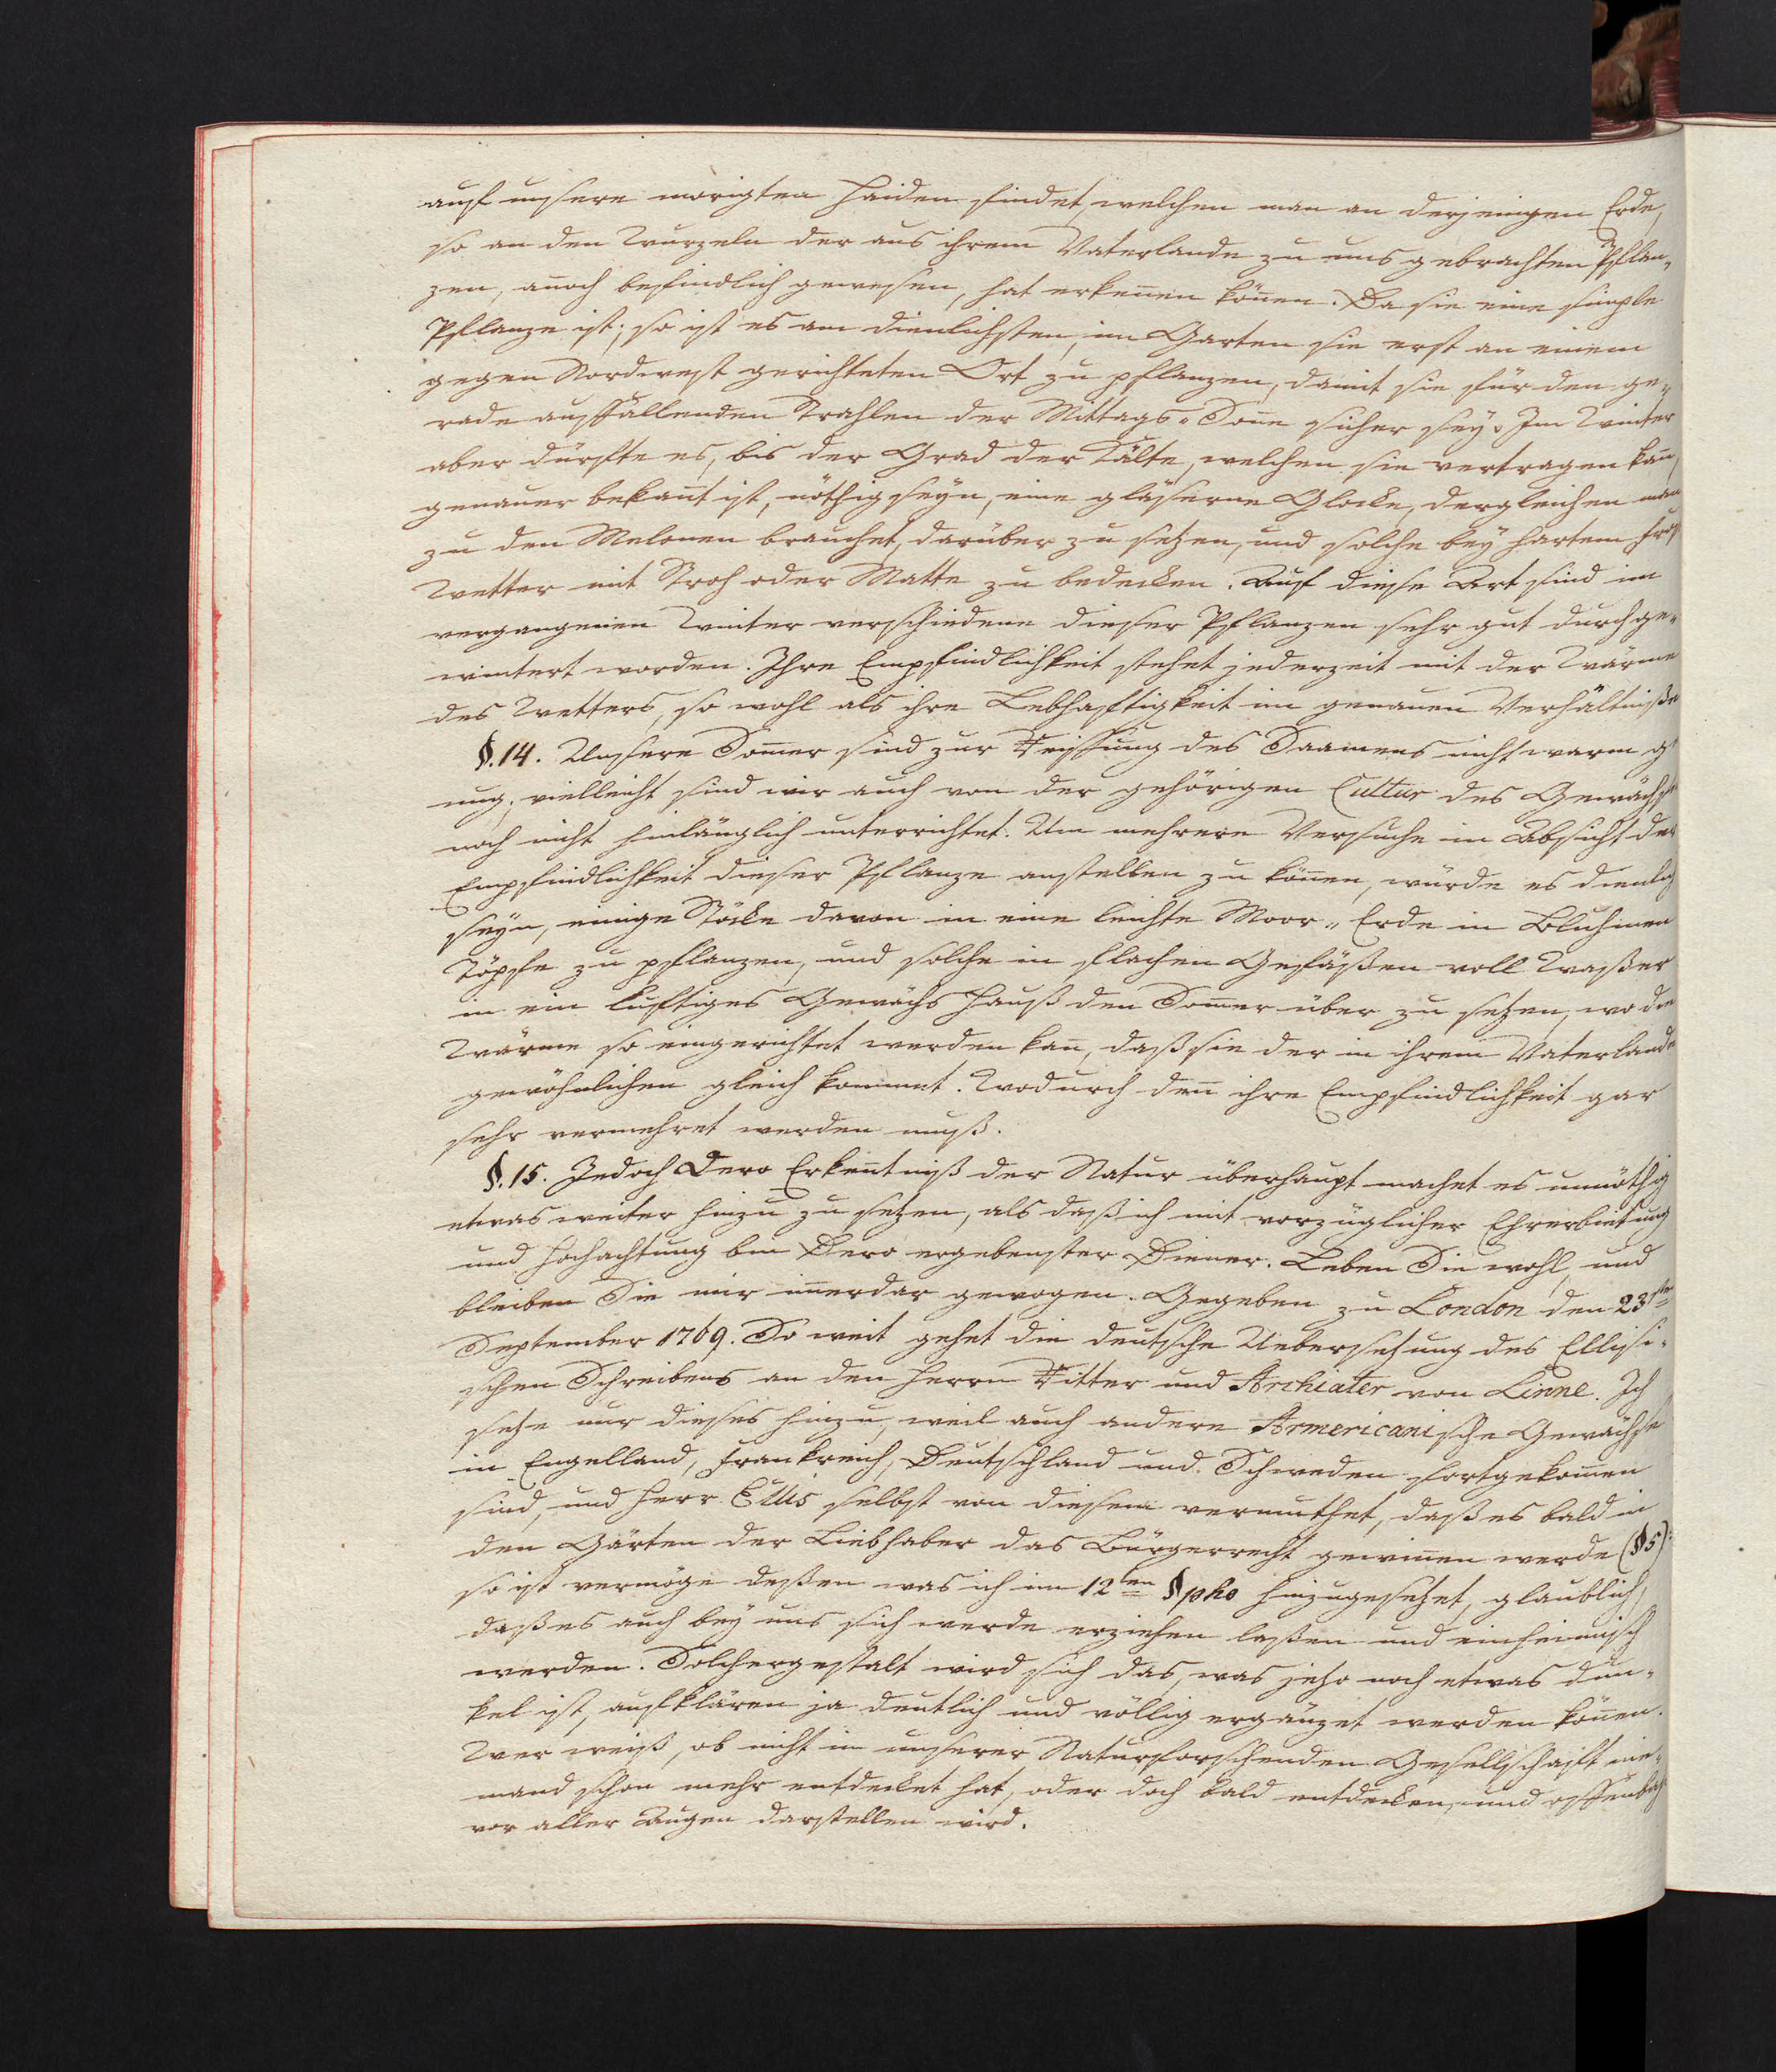 auf unsere morigten Haiden findet, welchen man an derjenigen Erde,
so an den Wurzeln der aus ihrem Vaterlande zu uns gebrachten Pflan-
zen, an̅och befindlich gewesen, hat erken̅en kön̅en. Da sie eine simple
Pflanze ist; so ist es am dienlichsten, im Garten sie erst an einem
gegen Nordwest gerichteten Ort zu pflanzen, damit sie für den ge-
rade auffallenden Strahlen der Mittags-Son̅e sicher sey. Im Winter
aber dürfte es, bis der Grad der Kälte, welchen sie vertragen kan̅,
genauer bekan̅t ist, nöthig seyn, eine gläserne Glocke, dergleichen man
zu den Melonen brauchet, darüber zu setzen, und solche bey hartem
Wetter mit Stroh oder Matte zu bedecken. Auf diese Art sind im
vergangenen Winter verschiedene dieser Pflanzen sehr gut durchge-
wintert worden. Ihre Empfindlichkeit stehet jederzeit mit der Wärme
des Wetters, so wohl als ihre Lebhaftigkeit im genauen Verhältniße
§. 14. Unsere Som̅er sind zur Reiffung des Saamens nicht warm ge
nug; vielleicht sind wir auch von der gehörigen Cultur des Gewächses
noch nicht hinlänglich unterrichtet. Um mehrere Versuche in Absicht der
Empfindlichkeit dieser Pflanze anstellen zu kön̅en, würde es dienlich
seyn, einige Stöcke davon in eine leichte Moor-Erde in Bluhmen
Töpfe zu pflanzen, und solche in flachen Gefäßen voll Waßer
in ein luftiges Gewächs Hauß den Som̅er über zu setzen, wo die
Wärme so eingerichtet werden kan̅, daß sie der in ihrem Vaterlande
gewöhnlichen gleich kommet. Wodurch den̅ ihre Empfindlichkeit gar
sehr vermehret werden muß.
§. 15. Jedoch Dero Erken̅tniß der Natur überhaupt machet es unnöthig
etwas weiter hinzu zu setzen, als daß ich mit vorzüglicher Ehrerbietung
und Hochachtung bin Dero ergebenster Diener. Leben Sie wohl, und
bleiben Sie mir im̅erdar gewogen. Gegeben zu London den 23sten
September 1769. So weit gehet die deutsche Uebersetzung des Ellisi-
schen Schreibens an den Herrn Ritter und Archiater von Linne. Ich
setze nur dieses hinzu, weil auch andere Armericanische Gewächse
in Engelland, Frankreich, Deutschland und Schweden fortgekom̅en
sind, und Herr Ellis selbst von diesem vermuthet, daß es bald in
den Gärten der Liebhaber das Bürgerrecht gewin̅en werde (§5):
so ist vermöge deßen was ich im 12en §pho hinzugesetzet, glaublich,
daß es auch bey uns sich werde erziehen laßen und einheimisch
werden. Solchergestalt wird sich das, was jetzo noch etwas dun-
kel ist, aufklären ja deutlich und völlig ergänzet werden kön̅en.
Wer weiß, ob nicht in unserer Naturforschenden Gesellschaft nie-
mand schon mehr entdecket hat, oder doch bald entdecken, und
vor aller Augen darstellen wird.